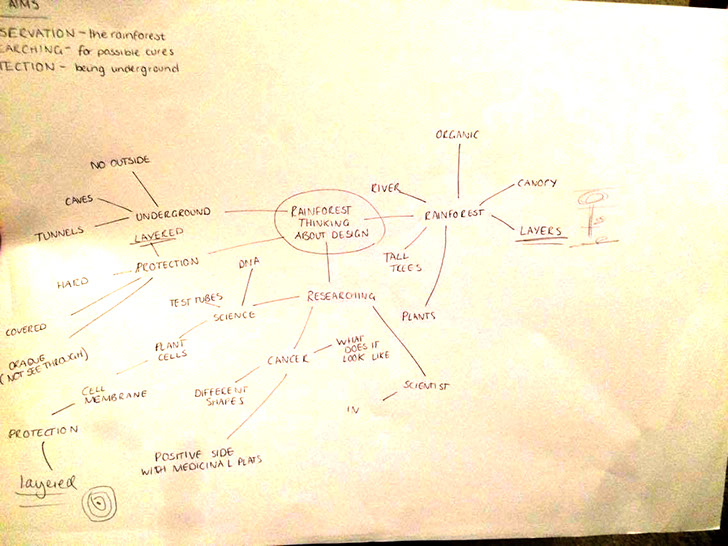 AIMS
SERVATION - the rainforest
EARCHING - for possible cures
TECTION - being underground
ORGANIC
NO OUTSIDE
RIVER
CANOPY
CAVES
UNDERGROUND
RAINFOREST
THINKING
ABOUT DESIGN
RAINFOREST
TUNNELS
LAYERED
LAYERS
PROTECTION
DNA
TALL
TREES
HARD
TEST TUBES
RESEARCHING
SCIENCE
PLANTS
COVERED
PLANT
CELLS
WHAT
DOES IT
LOOK LIKE
OPAQUE
(NOT SEE THROUGH)
CANCER
CELL
MEMBRANE
DIFFERENT
SHAPES
SCIENTIST
IN
PROTECTION
POSITIVE SIDE
WITH MEDICINAL PLATS
layered